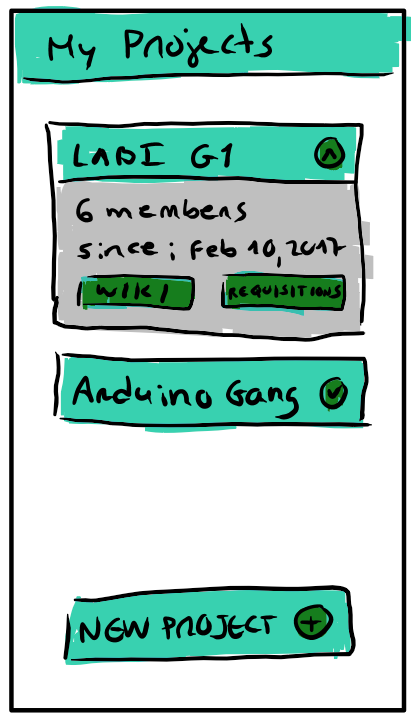 My Projects
LABI G1
6 members
since: Feb 10, 2017
WIKI
REQUISITIONS
Arduino Gang
NEW PROJECT +